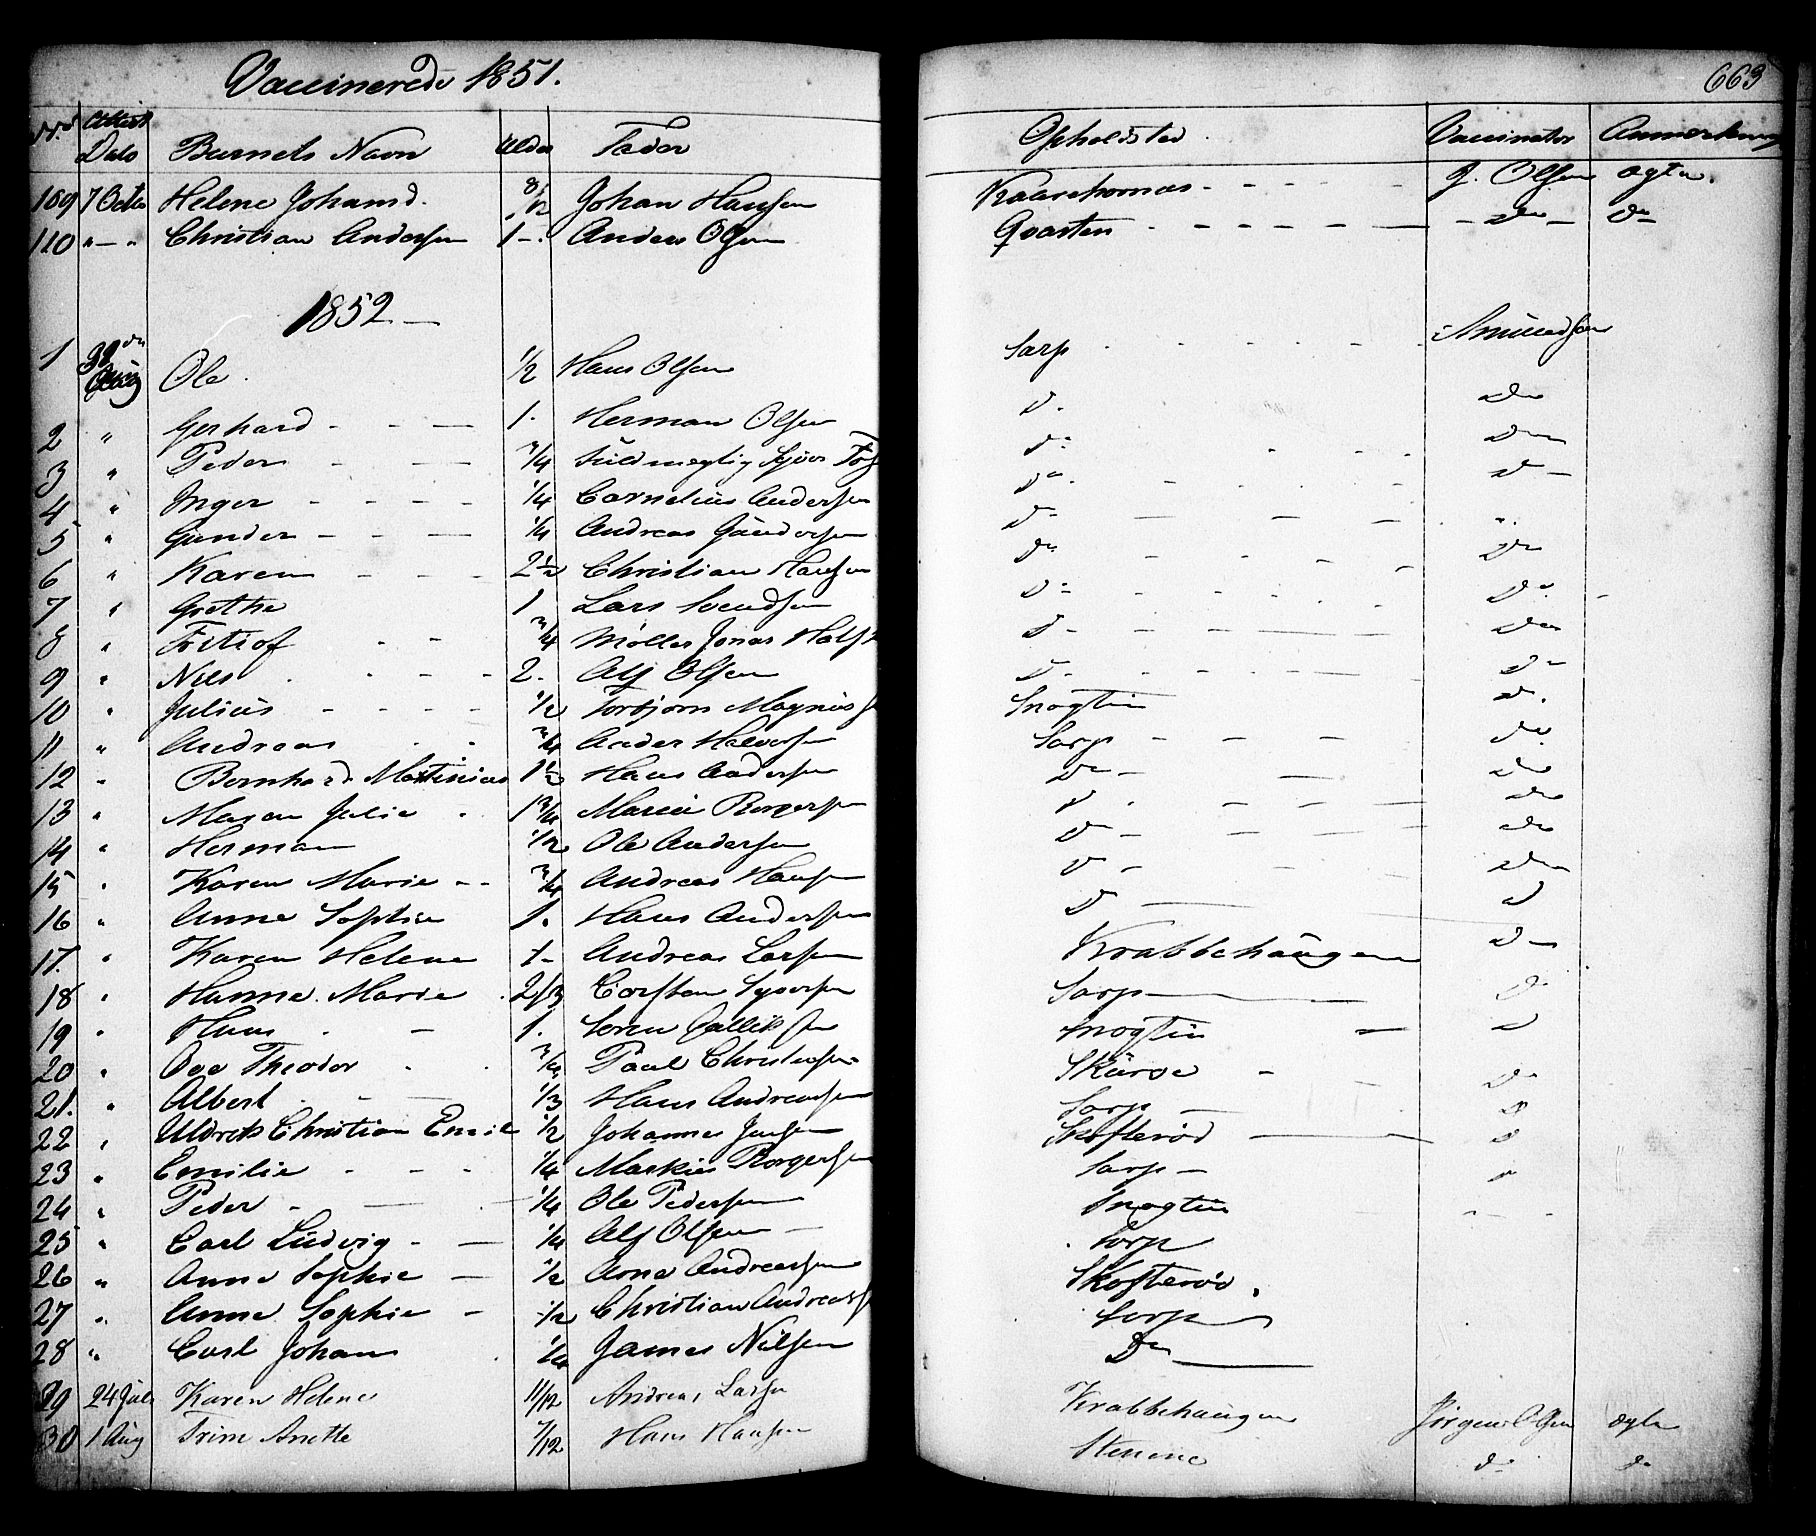 Vaccinerede 1851.
663
No Attest Dato Barnets Navn Alder Fader Opholdsted Vaccinator Anmerkning
109 7 Octb Helene Johansd. 8/12 Johan Hansen Kaarehornas - - - - - - J. Olsen ægte.
110 " - " Christian Andersen 1 - . Anders Olsen Qvarten - - - - - - Do - Do
1852 -
1 Aug Ole. 1/2 Hans Olsen Sarp - - - - - Amundsen
2 " Gerhard - - - 1. Herman Olsen D. Do
3 " Peder - - 3/4 Sjver Do Do
4 " Inger - - - - 1/4 Cornelius Andersen Do. - - - - Do -
5 " Gunder - - - 1/4 Andreas Gundersen Do - - - - "
6 " Karen - - - 2 1/2 Christian Hansen Do - - - - Do
7 " Grethe 1 Lars Svendsen Do - - - - Do. -
8 " Fritiof - - 3/4 Møller Jonas D - - - - Do
9 " Nils . - - - 2. Alf Olsen D - . - - - Do
10 " Julius - - - - 1/2 Torbjørn Magnus Snogtin Do.
11 " Andreas - - 3/4 Ander Halvorsen Sarp - - - - Do
12 " Bernhard Martinius 1 1/2 Hans Andersen Do - - - Do
13 " Maren Julie . 1 3/4 Borgersen D . - - - Do
14 " Herman 1/2 Ole Andersen D - - - Do
15 " Karen Marie - - 3/4 Andreas Hansen D - - - Do
16 " Anne Sophie 1. Hans Andersen D - D
17. " Karen Helene 1 - Andreas Larsen Krabbehaugen D -
18 " Hanne Marie . 2/3 Torsten Syversen Sarp - D
19 " Hans . - 1. Søren Snogtin - D
20 " Ove Theodor . . 3/4 Paul Christensen Skarøe - D
21. " Albert . - - 1/3 Hans Andreassen Sarp - D
22 " Uldrik Christian Emil 1/2 Johannes Jensen Skofterød - D
23 " Emilie - - - 1/4 Markus Borgersen Sarp -
24 " Peder - - 1/4 Ole Pedersen Snogtin - - -
25 " Carl Ludvig - - 1/4 Alf Olsen - Sarp
26 " Anne Sophie - 1/2 Arne Andreassen Skofterød.
27 " Anne Sophie - 1/2 Christian Andreas Sarp
28 " Carl Johan . 1/4 James Nilsen Do -
29 24 Juli Karen Helene 11/12 Andreas Larsen Krabbehaugen Jørgen Olsen ægte
30 1 Aug Trine Anette 7/12 Hans Hansen Stenene do do